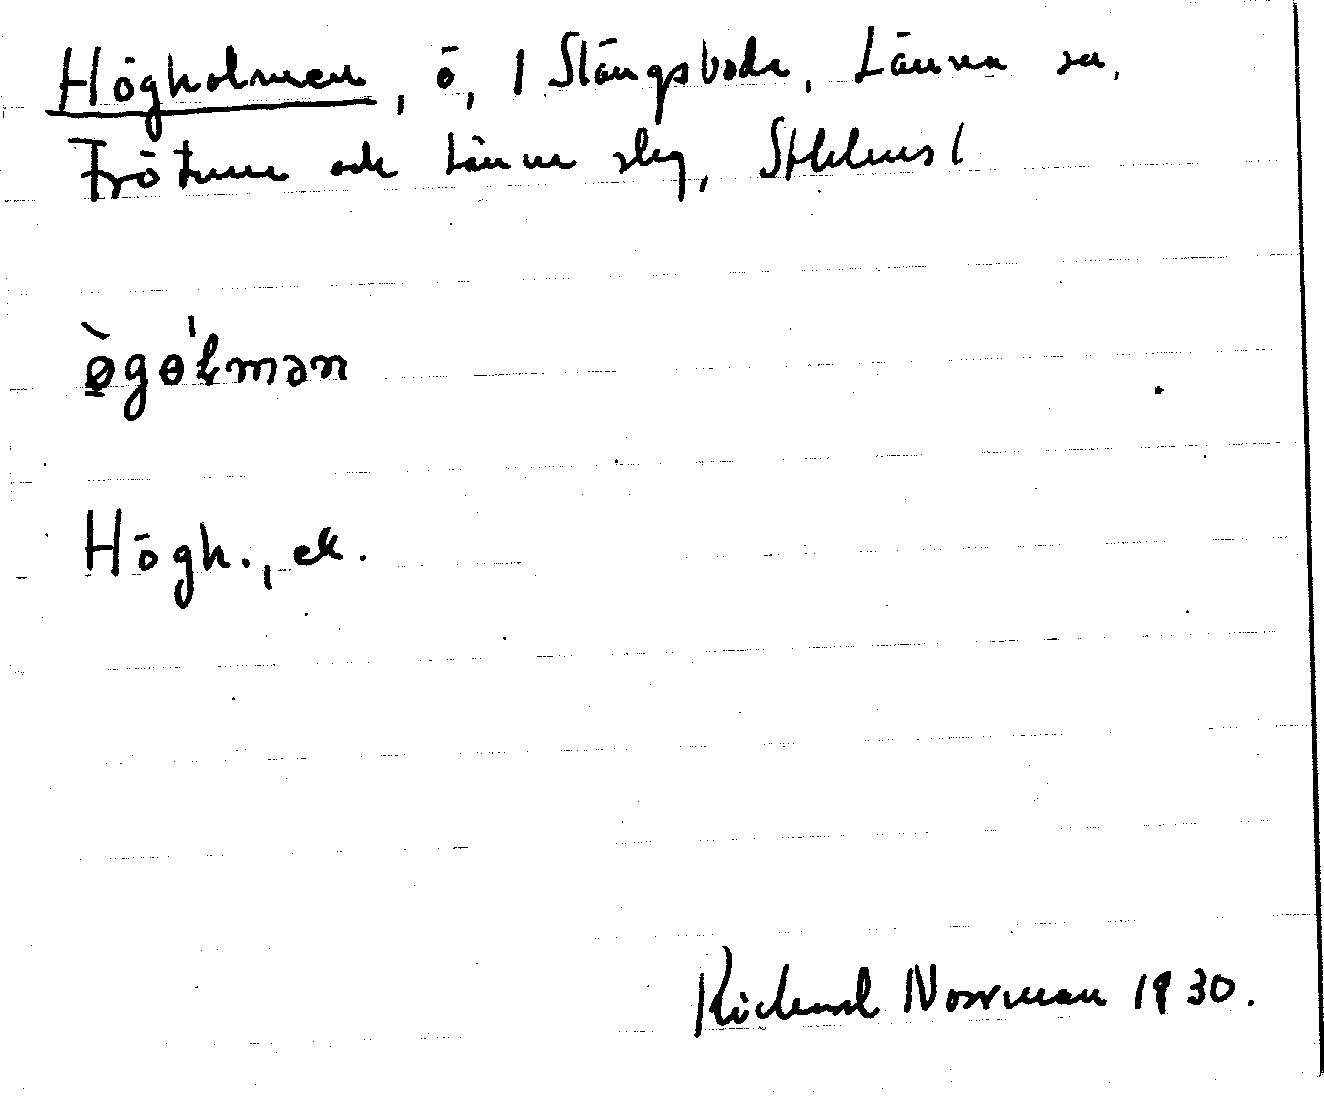 Högholmen, ö, 1 Stångsboda, Länna sn,
Frötuna och Länna slg, Sthlms l
ø̀gɵ'ɫmən
Högh., ek.
Richard Norrman 1930.